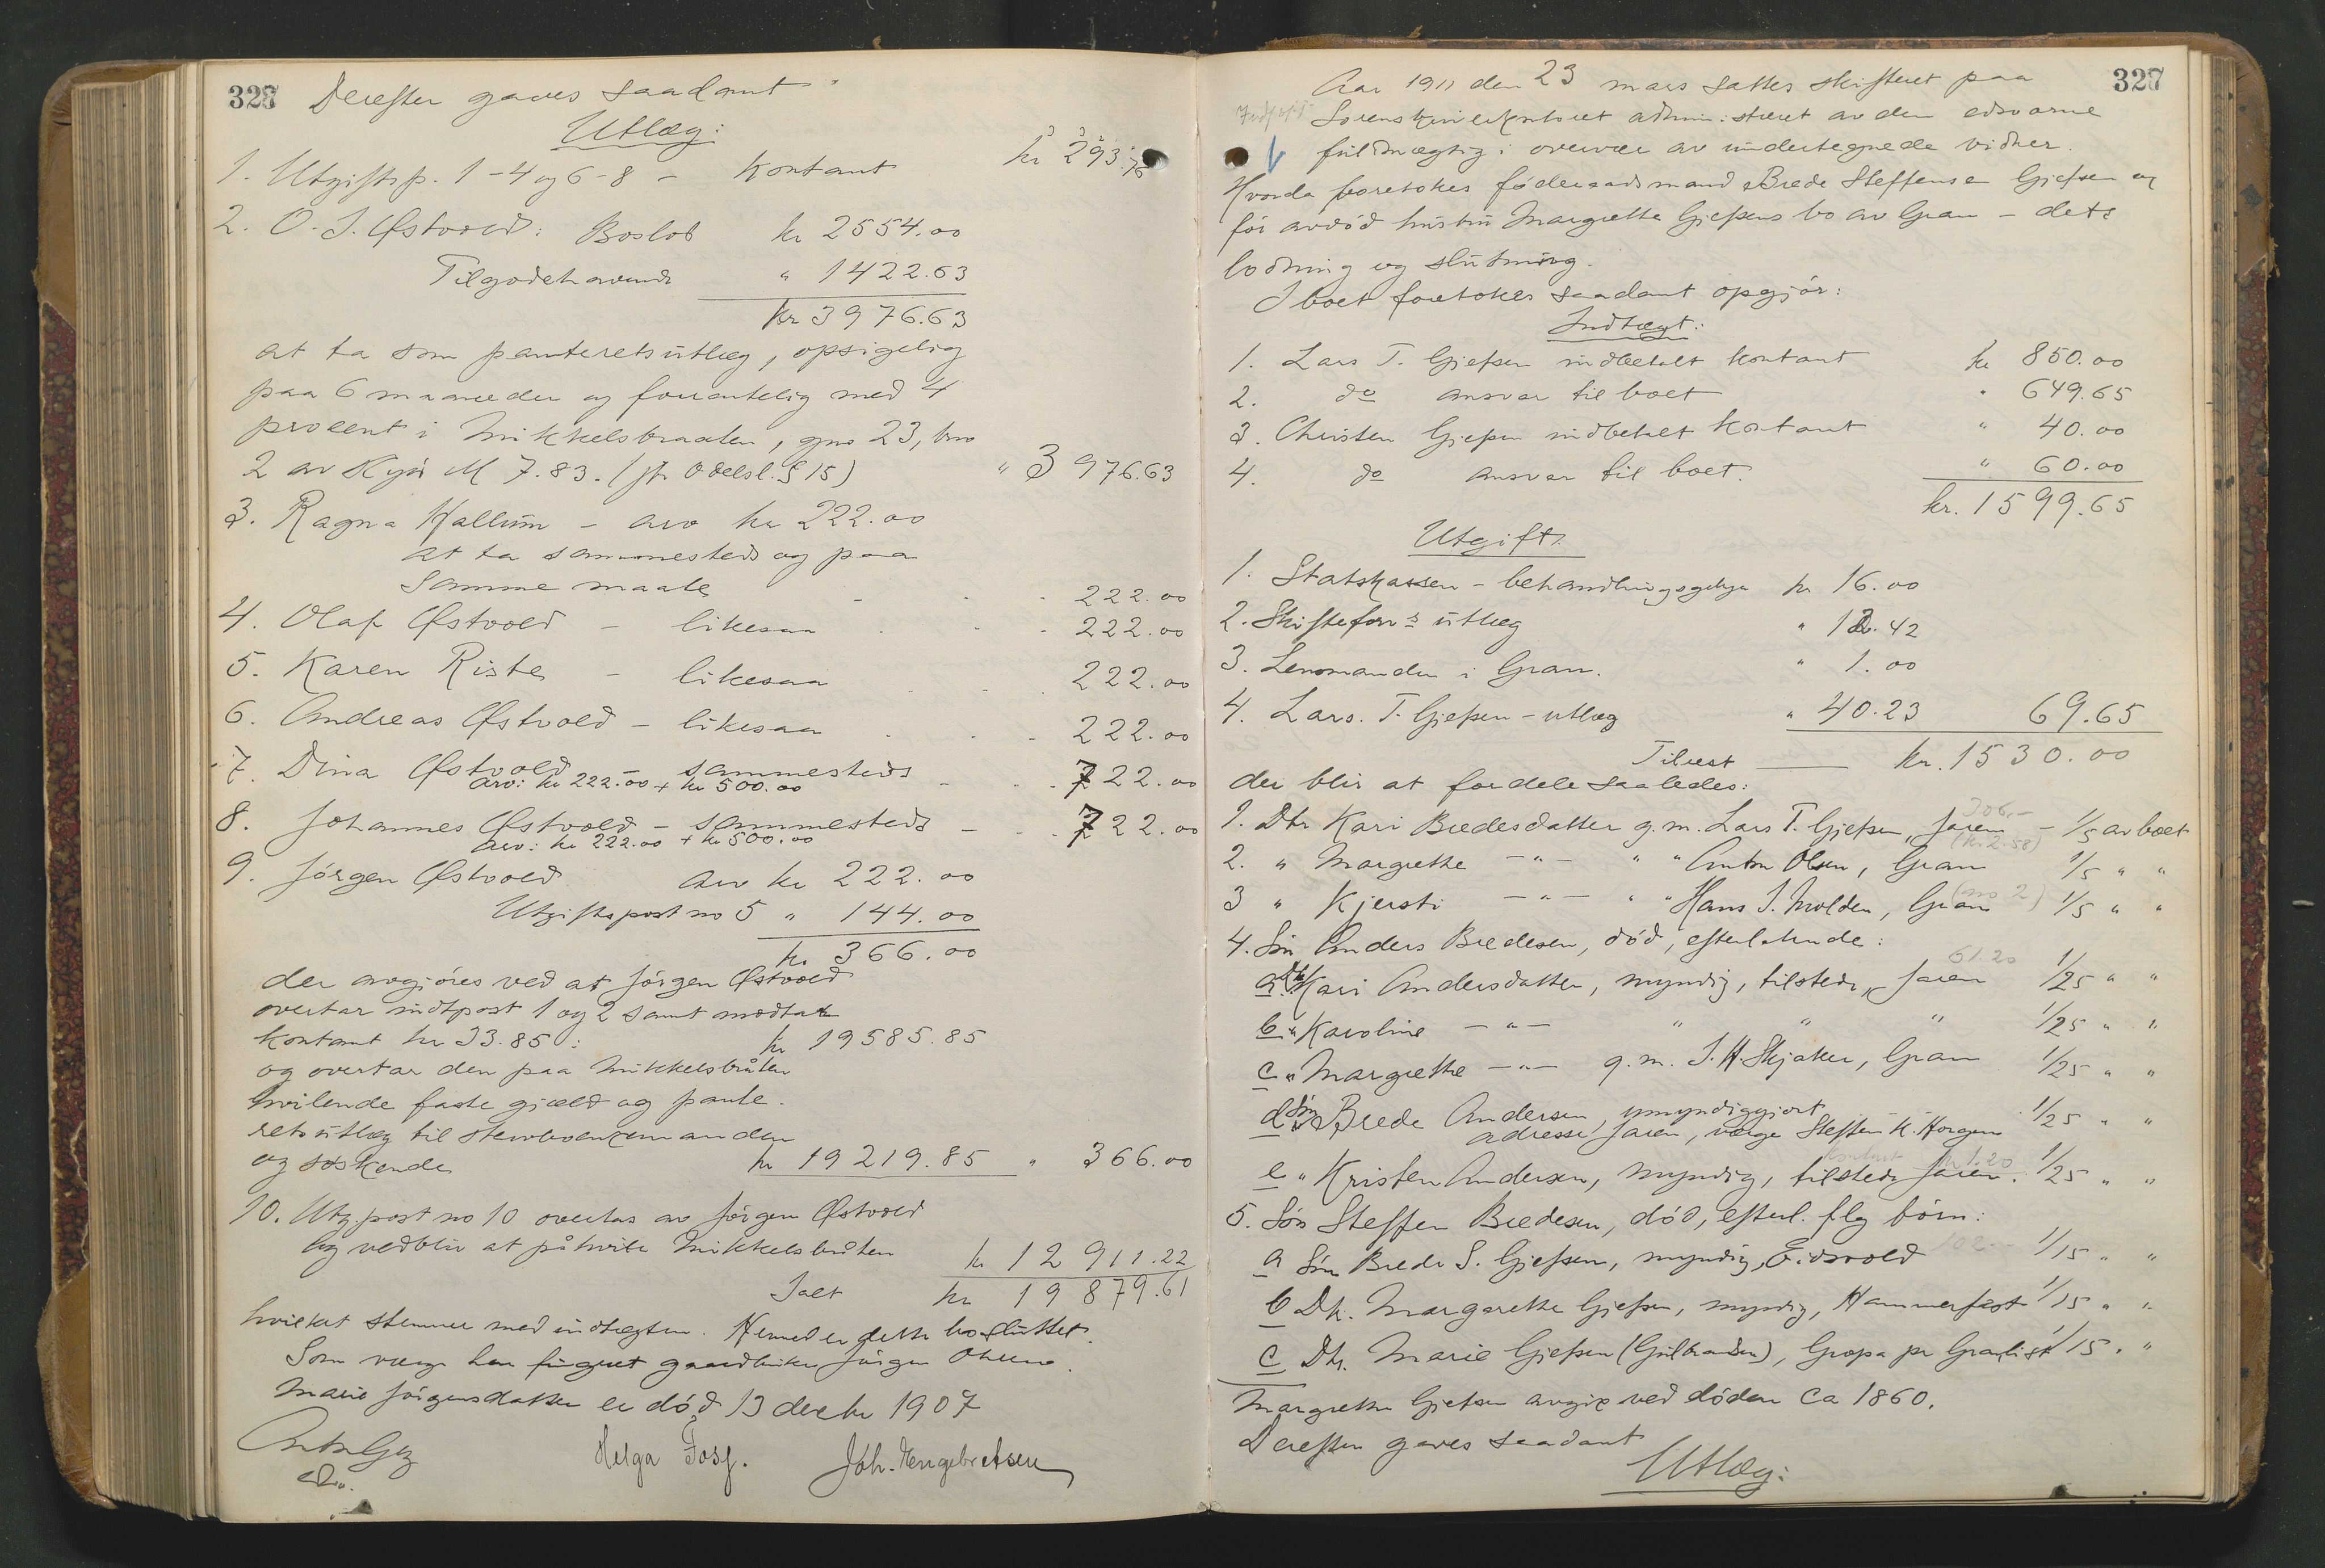 328 Derefter gaves saadant
Utlæg:
1. Utgiftsp. 1-4 og 6-8 - Kontant kr 293.76
2. O. J. Østvold: Boslod kr 2554.00
Tilgodehavende " 1422.63
kr 3976.63
at ta som panteretsutlæg, opsigelig
paa 6 maaneder og forrentelig med 4
procent i Mikkelsbraaten, gno 23, bno
2 av Skyld M 7.83. (jfr Odelsl. § 15) " 3976.63
3. Ragna Hallum - arv kr 222.00
at ta sammesteds og paa
samme maate - - - 222.00
4. Olaf Østvold - likesaa - - - 222.00
5. Karen Riste - likesaa - - - 222.00
6. Andreas Østvold - likesaa - - - 222.00
7. Dina Østvold - sammesteds - - - 722.00
arv: kr 222.00 + kr 500.00
8. Johannes Østvold - sammesteds - - - 722.00
arv: kr 222.00 + kr 500.00
9. Jørgen Østvold arv kr 222.00
Utgiftspost no 5 " 144.00
kr 366.00
der avgjøres ved at Jørgen Østvold
overtar indtpost 1 og 2 samt mottar
kontant kr 33.85: kr 19585.85
og overtar den paa Mikkelsbråten
hvilende faste gjæld og pante-
retsutlæg til stervboenkemanden
og søskende kr 19219.85 " 366.00
10. Utg post no 10 overtas av Jørgen Østvold
og vedblir at påhvile Mikkelsbråten kr 12911.22
Ialt kr 19879.61
hvilket stemmer med indtægten. Hermed er dette bo sluttet.
Som verge har fungeret gaardbruker Jørgen
Marie Jørgensdatter er død 13 decbr 1907
Helga Fosf. Joh. Engebretsen
Aar 1911 den 23 mars sattes skifteret paa 327
Sorenskriverkontoret administreret av den edsvorne
fuldmægtig i overvær av undertegnede vidner.
Hvorda foretokes føderaadsmand Brede Steffensen Gjefsen og
før avdød hustru Margrethe Gjefsens bo av Gran - dets
lodning og slutning.
I boet foretokes saadant opgjør:
Indtægt:
1. Lars T. Gjefsen indbetalt kontant kr 850.00
2. do ansvar til boet " 649.65
3. Christen Gjefsen indbetalt kontant " 40.00
4. do ansvar til boet. " 60.00
kr. 1599.65
Utgift:
1. Statskassen - behandlingsgebyr kr 16.00
2. Skifteforv s utlæg " 12.42
3. Lensmanden i Gran. " 1.00
4. Lars. T. Gjefsen - utlæg " 40.23 69.65
Tilrest kr. 1530.00
der blir at fordele saaledes:
306.-
1. Dtr Kari Bredesdatter g. m. Lars T. Gjefsen, Jaren - 1/5 av boet
2. " Margrethe -"- " " Anton Olsen, Gran 1/5 " "
3 " Kjersti -"- " " Hans J. Molden, Gran 1/5 " "
4. Søn Anders Bredesen, død, efterlatende:
61.20
a Dtr Kari Andersdatter, myndig, tilstede, Jaren 1/25 " "
b " Karoline -"- " " " 1/25 " "
c " Margrethe -"- g. m. J. H. Skjaker, Gran 1/25 " "
d Søn Brede Andersen, umyndiggjort 1/25 " "
adresse Jaren, værge Steffen K. Horgen
e " Kristen Andersen, myndig, tilstede Jaren. 1/25 " "
5. Søn Steffen Bredesen, død, efterl. flg børn:
102.-
a Søn Brede S. Gjefsen, myndig, Eidsvold 1/15 " "
b Dtr. Margarethe Gjefsen, myndig, Hammerfest 1/15 " "
c Dtr. Marie Gjefsen (Gulbrandsen), Gropa pr Granlist 1/15 " "
Margrethe Gjefsen avgik ved døden ca 1860.
Derefter gaves saadant
Utlæg: